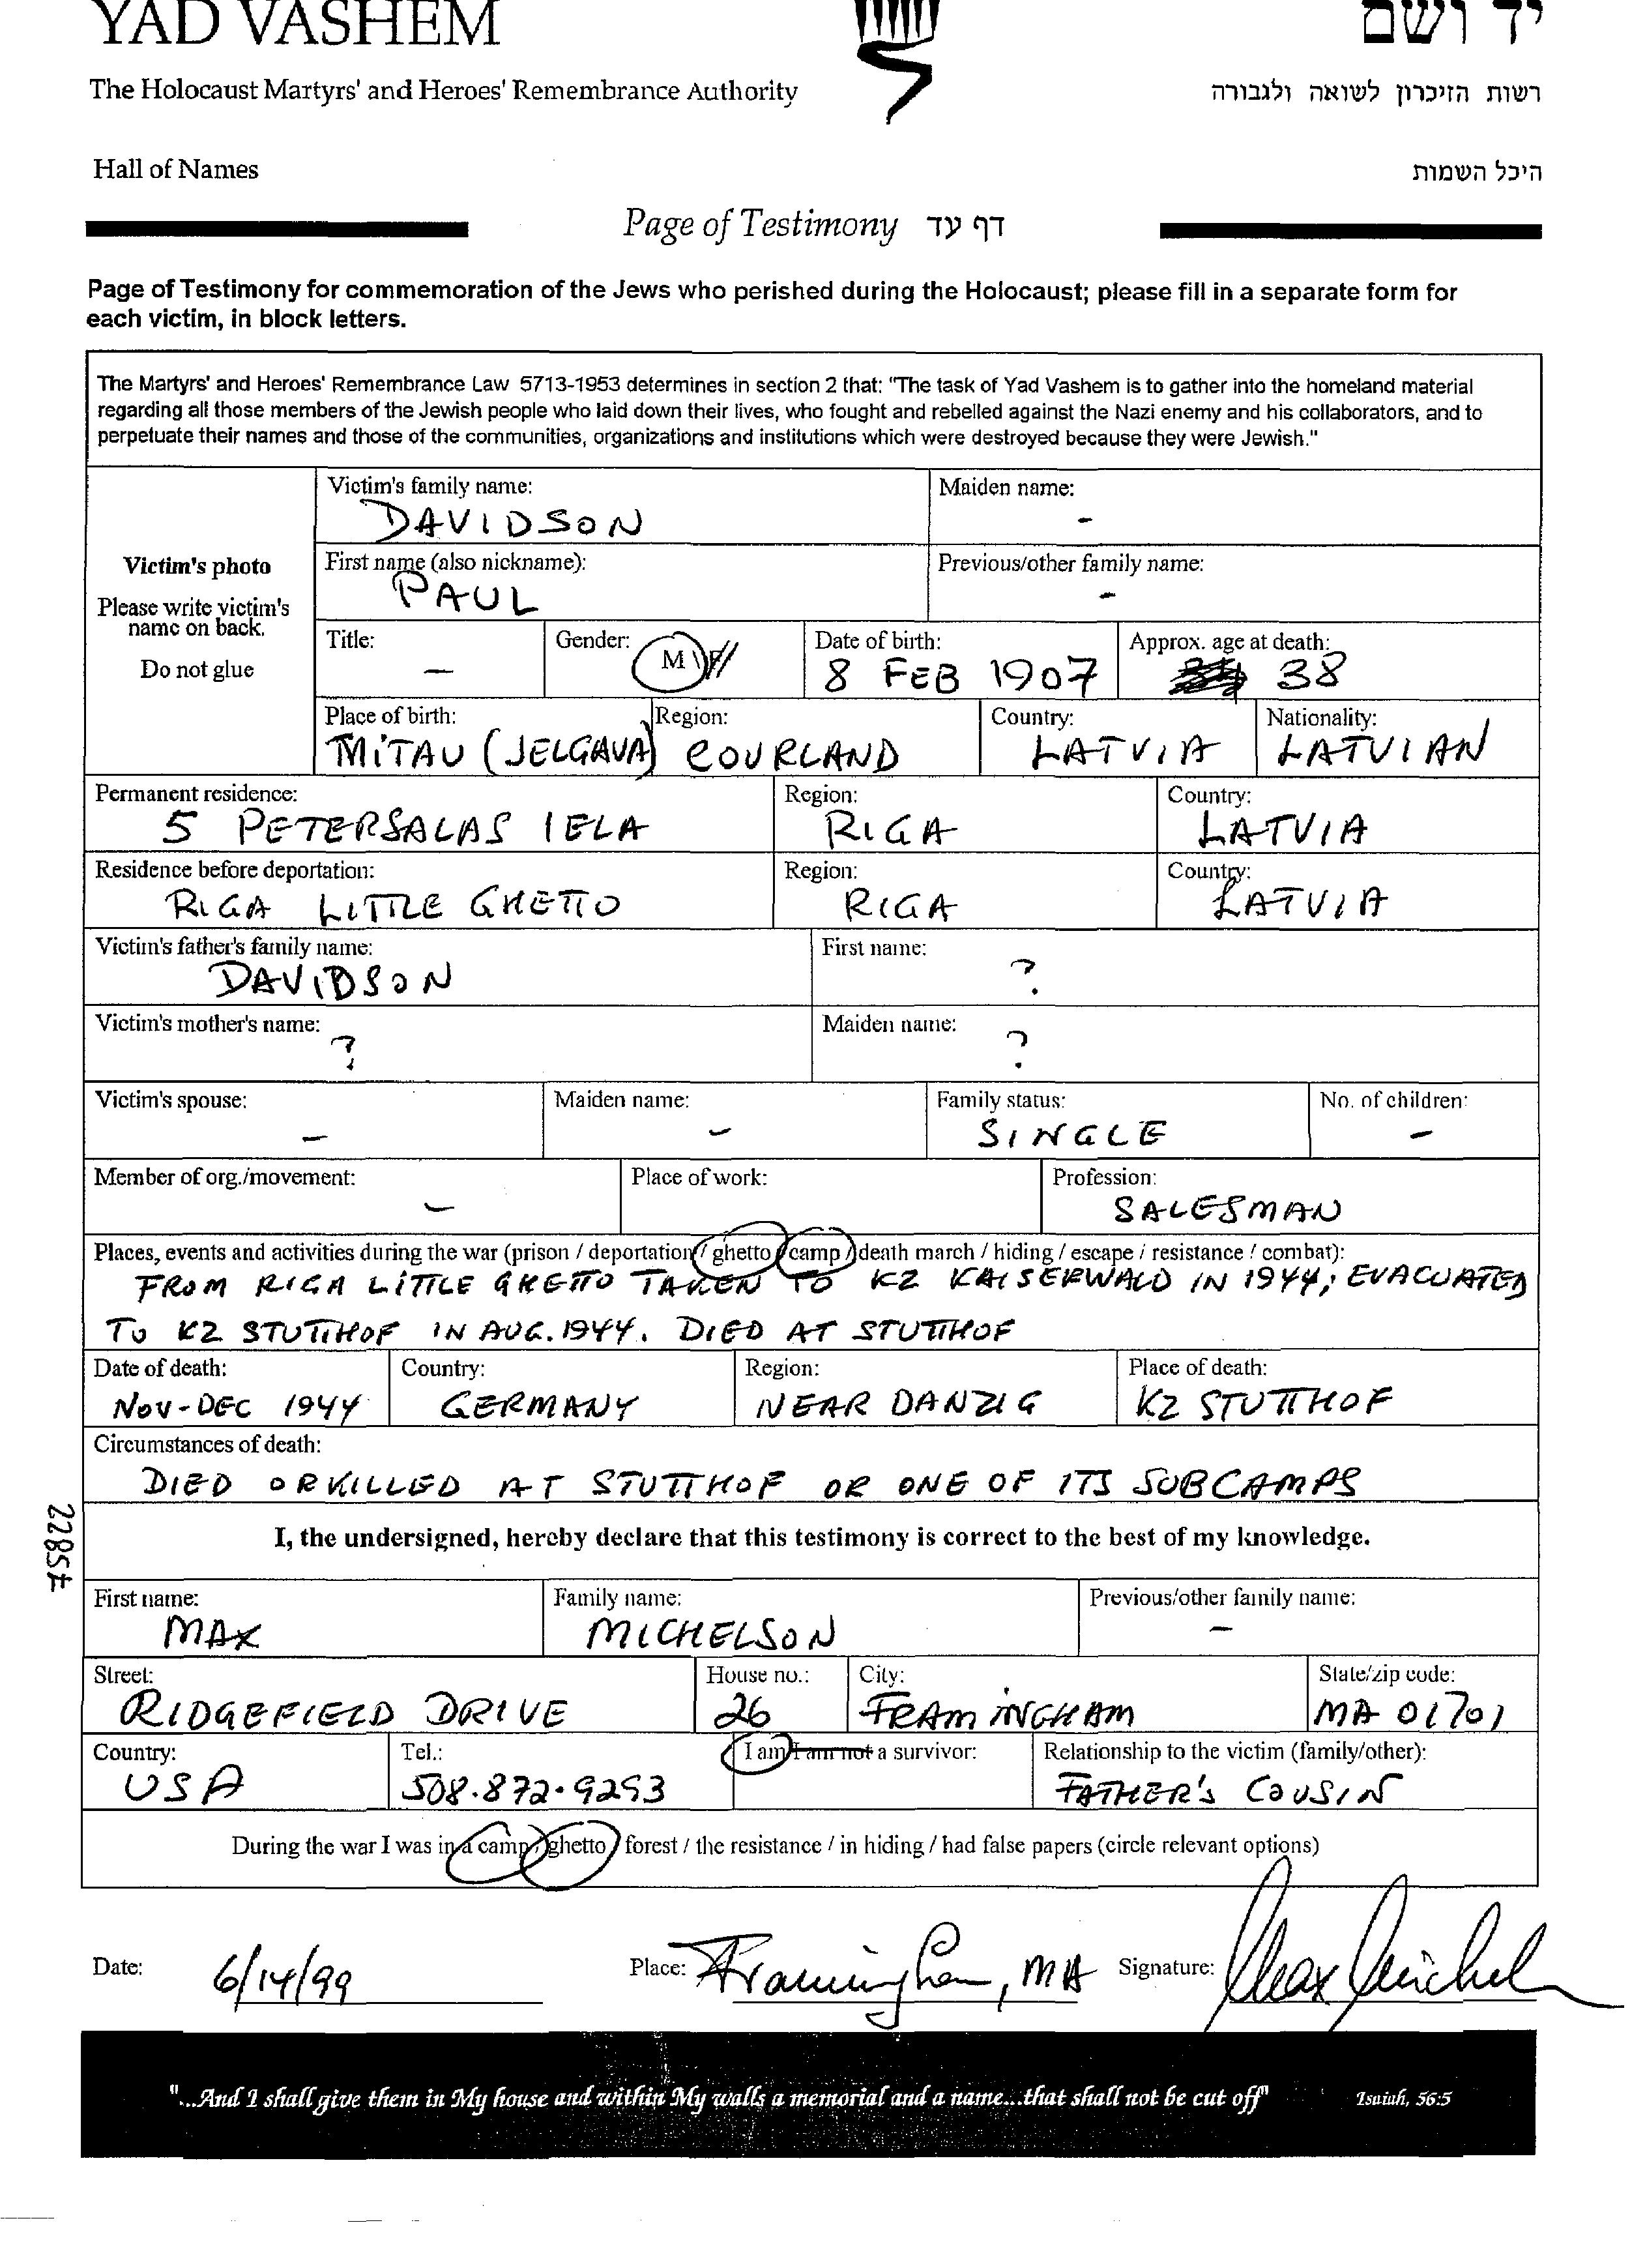 YAD VASHEM יד ושם
The Holocaust Martyrs' and Heroes' Remembrance Authority רשות הזיכרון לשואה ולגבורה
Hall of Names היכל השמות
Page of Testimony דף עד
Page of Testimony for commemoration of the Jews who perished during the Holocaust; please fill in a separate form for
each victim, in block letters.
The Martyrs' and Heroes' Remembrance Law 5713-1953 determines in section 2 that: "The task of Yad Vashem is to gather into the homeland material
regarding all those members of the Jewish people who laid down their lives, who fought and rebelled against the Nazi enemy and his collaborators, and to
perpetuate their names and those of the communities, organizations and institutions which were destroyed because they were Jewish."
Victim's photo
Please write victim's
name on back.
Do not glue
Victim's family name: Maiden name:
DAVIDSON -
First name (also nickname): Previous/other family name:
PAUL -
Title: Gender: Date of birth: Approx. age at death:
— M \ F 8 FEB 1907 38
Place of birth: Region: Country: Nationality:
MITAU (JELGAVA) COURLAND LATVIA LATVIAN
Permanent residence: Region: Country:
5 PETERSALAS IELA RIGA LATVIA
Residence before deportation: Region: Country:
RIGA LITTLE GHETTO RIGA LATVIA
Victim's father's family name: First name:
DAVIDSON ?
Victim's mother's name: Maiden name:
? ?
Victim's spouse: Maiden name: Family status: No. of children:
- - SINGLE -
Member of org./movement: Place of work: Profession:
- SALESMAN
Places, events and activities during the war (prison / deportation / ghetto / camp / death march / hiding / escape / resistance / combat):
FROM RIGA LITTLE GHETTO TAKEN TO KZ KAISERWALD IN 1944; EVACUATED
TO KZ STUTTHOF IN AUG. 1944. DIED AT STUTTHOF
Date of death: Country: Region: Place of death:
NOV-DEC 1944 GERMANY NEAR DANZIG KZ STUTTHOF
Circumstances of death:
DIED OR KILLED AT STUTTHOF OR ONE OF ITS SUBCAMPS
22857
I, the undersigned, hereby declare that this testimony is correct to the best of my knowledge.
First name: Family name: Previous/other family name:
MAX MICHELSON -
Street: House no.: City: State/zip code:
RIDGEFIELD DRIVE 26 FRAMINGHAM MA 01701
Country: Tel.: I am / I am not a survivor: Relationship to the victim (family/other):
USA 508.872.9293 FATHER'S COUSIN
During the war I was in a camp / ghetto / forest / the resistance / in hiding / had false papers (circle relevant options)
Date: 6/14/99 Place: Framingham, MA Signature: Max Michel
"...And I shall give them in My house and within My walls a memorial and a name...that shall not be cut off" Isaiah, 56:5